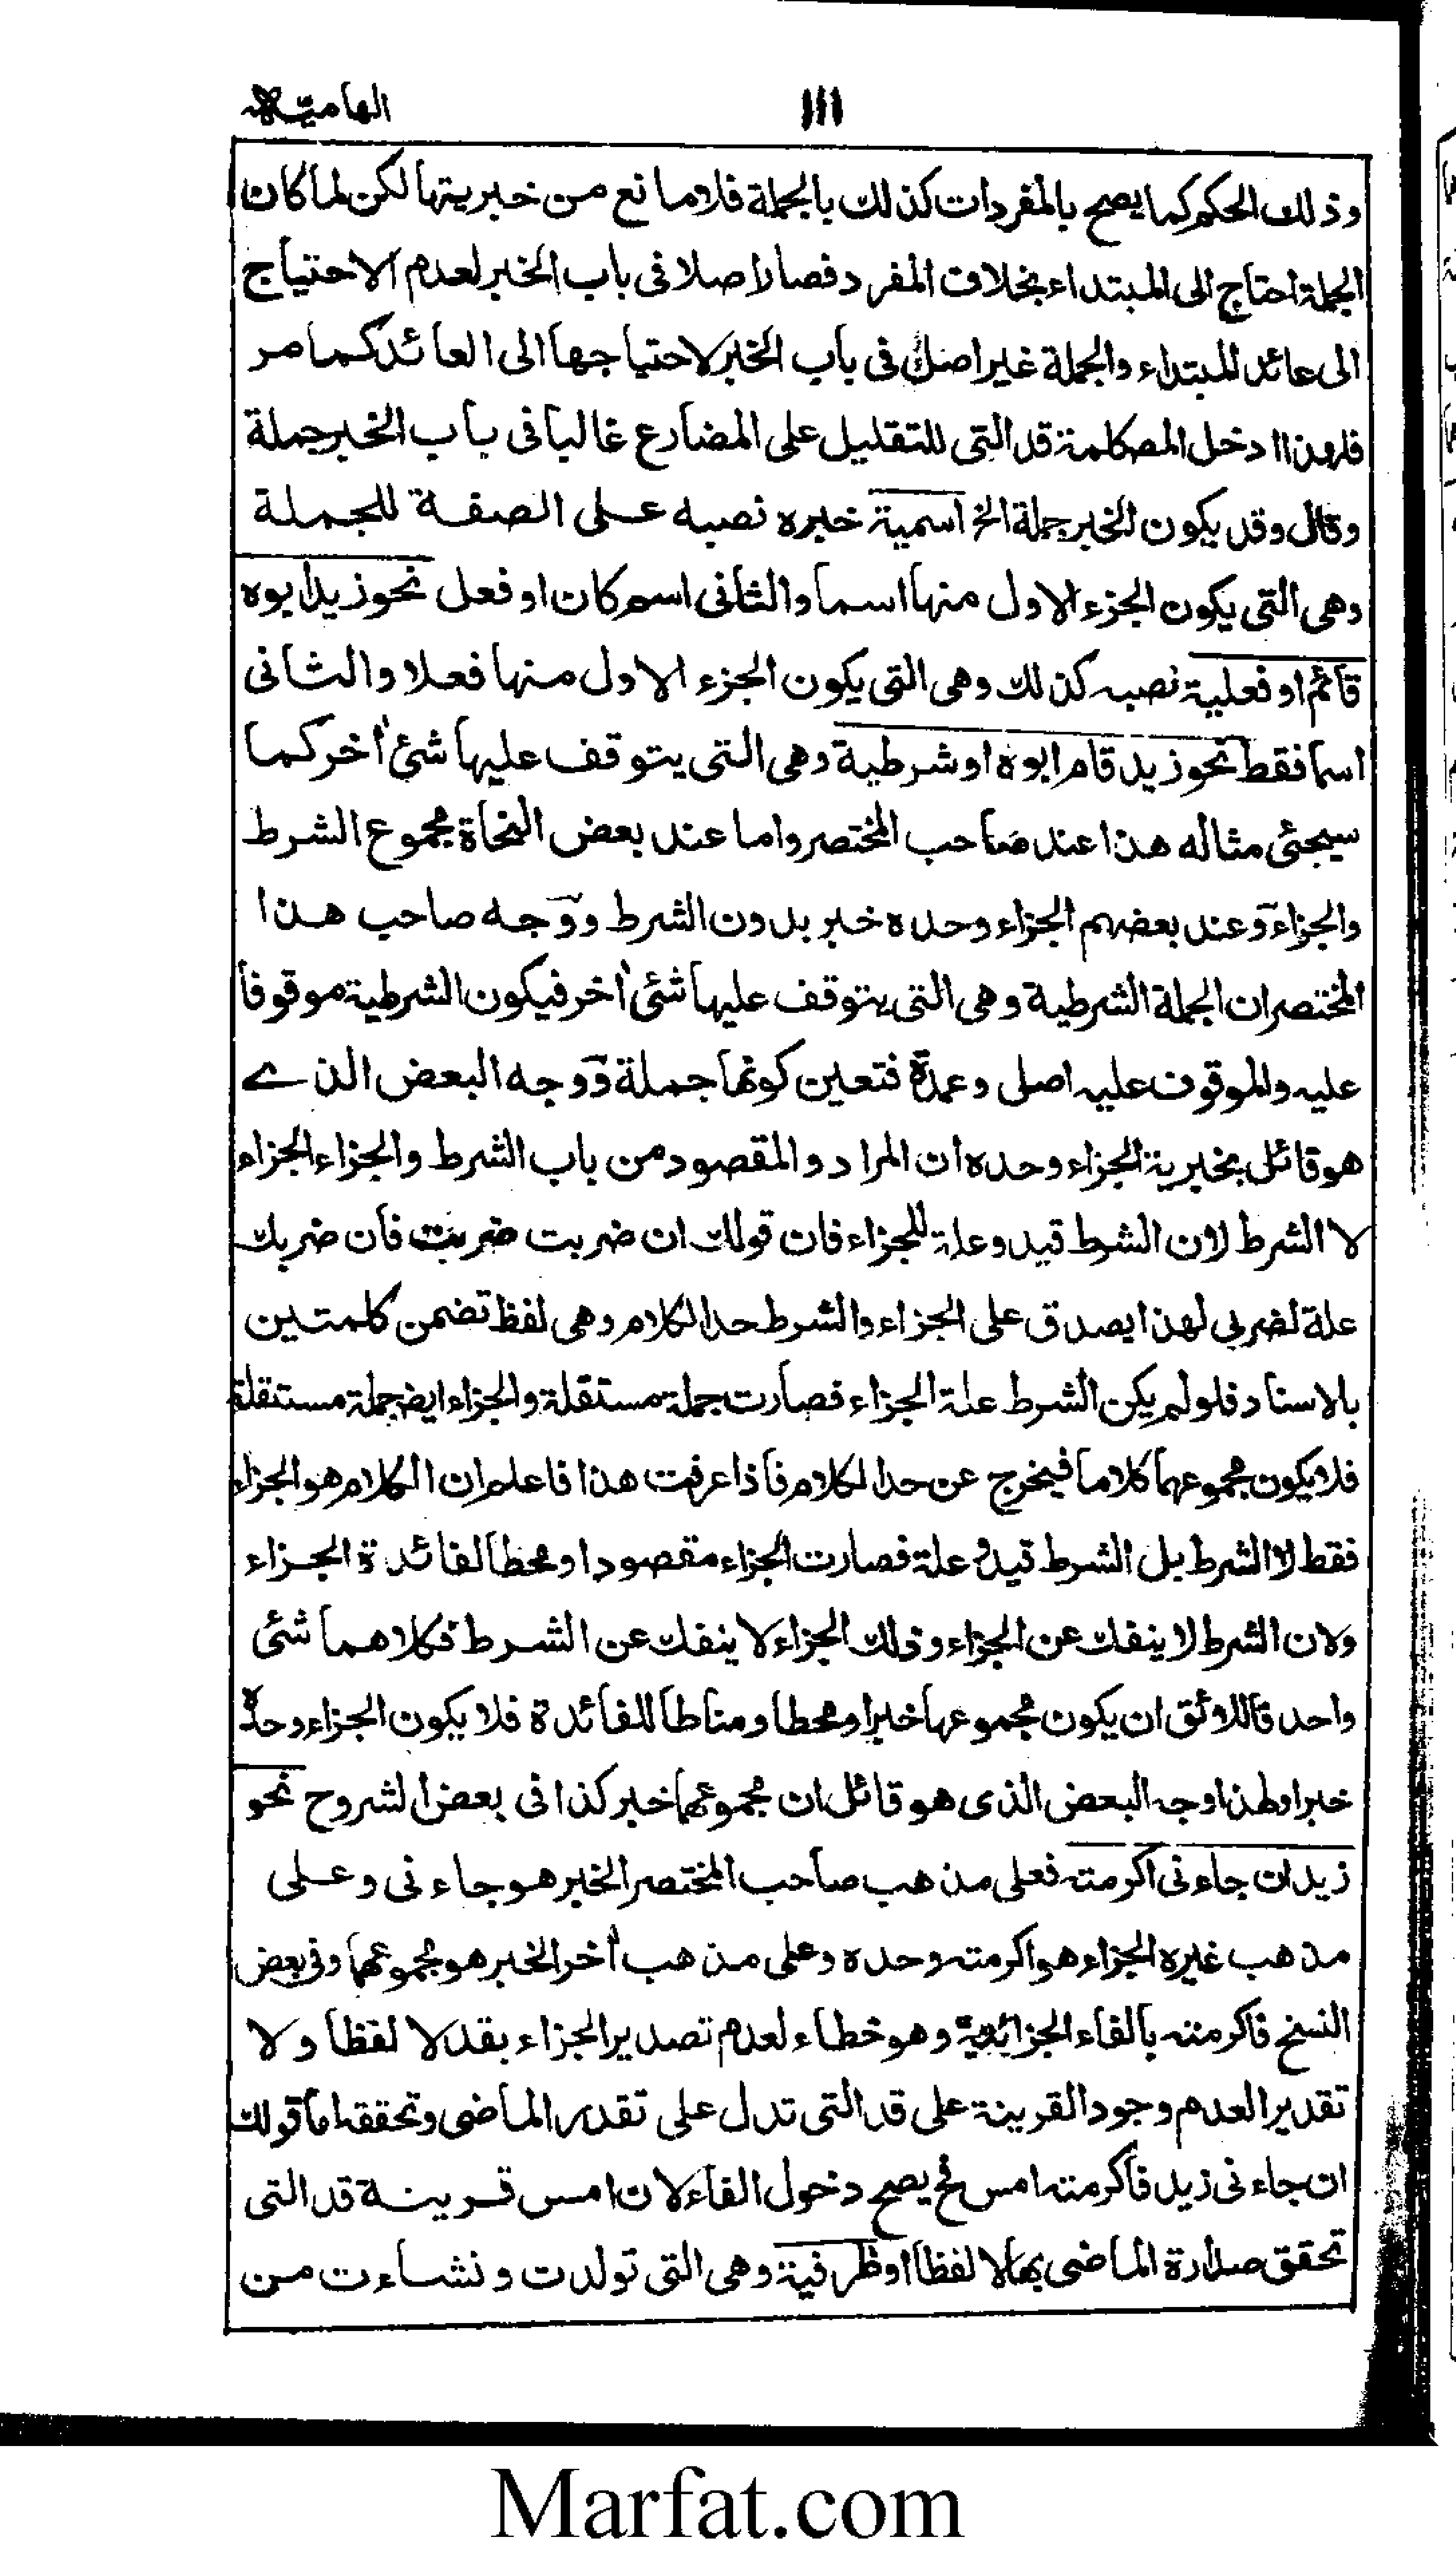 ١١١ الهاميّه
وذلك الحكم كما يصح بالمفردات كذلك بالجملة فلا مانع من خبريتها لكن لما كان
الجملة احتاج الى المبتداء بخلاف المفرد فصار اصلا فى باب الخبر لعدم الاحتياج
الى عائد للمبتداء والجملة غير اصل فى باب الخبر لاحتياجها الى العائد كما مر
فلهذا ادخل المص كلمة قد التى للتقليل على المضارع غالبا فى باب الخبر جملة
وقال وقد يكون الخبر جملة الخ اسمية خبره نصبه على الصفة للجملة
وهى التى يكون الجزء الاول منها اسما والثانى اسم كان او فعل نحو زيد ابوه
قائم او فعلية نصبه كذلك وهى التى يكون الجزء الاول منها فعلا والثانى
اسما فقط نحو زيد قام ابوه او شرطية وهى التى يتوقف عليها شئ اٰخر كما
سيجئى مثاله هذا عند صاحب المختصر واما عند بعض النحاة مجموع الشرط
والجزاء وعند بعضهم الجزاء وحده خبر بدون الشرط ووجه صاحب هذا
المختصر ان الجملة الشرطية وهى التى يتوقف عليها شئى اٰخر فيكون الشرطية موقوفا
عليه والموقوف عليه اصل وعمدة فتعين كونها جملة ووجه البعض الذے
هو قائل بخبرية الجزاء وحده ان المراد والمقصود من باب الشرط والجزاء الجزاء
لا الشرط لان الشرط قيد وعلة للجزاء فان قولك ان ضربت ضربت فان ضربك
علة لضربى لهذا يصدق على الجزاء والشرط حد الكلام وهى لفظ تضمن كلمتين
بالاسناد فلو لم يكن الشرط علة الجزاء فصارت جملة مستقلة والجزاء ايضا جملة مستقلة
فلا يكون مجموعهما كلاما فيخرج عن حد الكلام فاذا عرفت هذا فاعلم ان الكلام هو الجزاء
فقط لا الشرط بل الشرط قيد وعلة فصارت الجزاء مقصودا ومحط الفائدة الجزاء
ولان الشرط لا ينفك عن الجزاء وذلك الجزاء لا ينفك عن الشرط فكلاهما شئى
واحد فاللائق ان يكون مجموعها خبرا ومحطا ومناطا للفائدة فلا يكون الجزاء وحده
خبرا ولهذا وجه البعض الذى هو قائل ان مجموعهما خبر كذا فى بعض الشروح نحو
زيد ان جاءنى اكرمته فعلى مذهب صاحب المختصر الخبر هو جاءنى وعلى
مذهب غيره الجزاء هو اكرمته وحده وعلى مذهب اٰخر الخبر هو مجموعهما وفى بعض
النسخ فاكرمته بالفاء الجزائية وهو خطاء لعدم تصدير الجزاء بقد لا لفظا ولا
تقديرا لعدم وجود القرينة على قد التى تدل على تقدر الماضى وتحققه اما قولك
ان جاءنى زيد فاكرمته امس فح يصح دخول الفاء لان امس قرينة قد التى
تحقق صدارة الماضى بها لا لفظا او ظرفية وهى التى تولدت ونشاءت من
Marfat.com